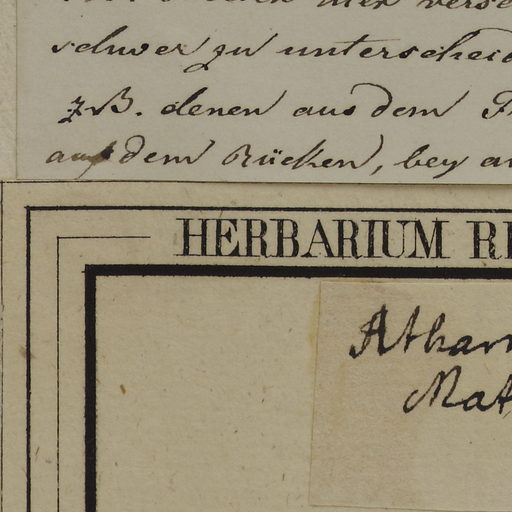 hier verse
schwer zu unterscheid
z.B. denen aus dem F
auf dem Rücken, bey a
HERBARIUM RE
Atham
Mat